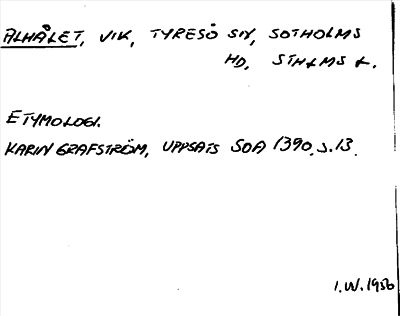 ALHÅLET, VIK, TYRESÖ SN, SOTHOLMS
HD, STHLMS L.
ETYMOLOGI.
KARIN GRAFSTRÖM, UPPSATS SOA 1390, S. 13.
I.W. 1956